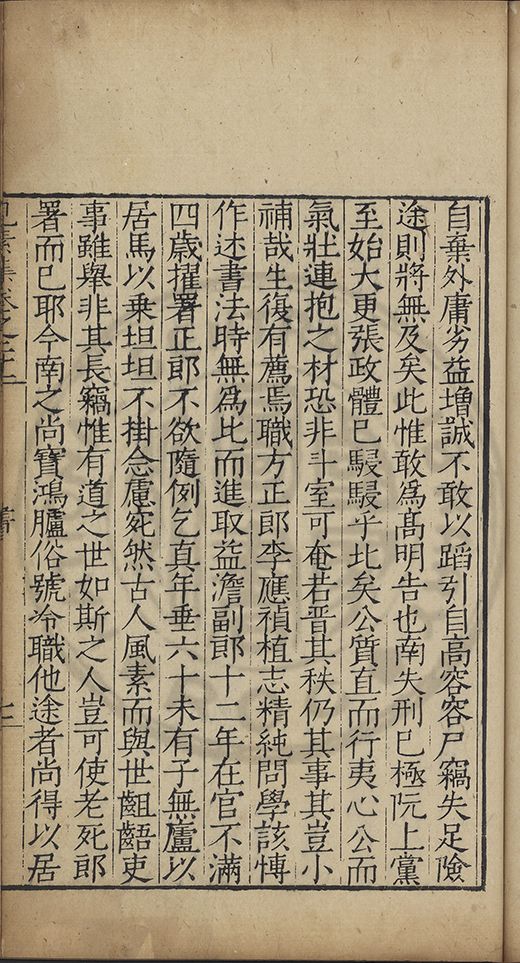 自棄外庸劣益增誠不敢以蹈引自高容容尸竊失足險
途則將無及矣此惟敢為高明告也南失刑巳極阮上黨
至始大更張政體巳駸駸乎北矣公質直而行夷心公而
氣壯連抱之材恐非斗室可奄若晋其秩仍其事其豈小
補哉生復有薦焉職方正郎李應禎植志精純問學該慱
作述書法時無為比而進取益澹副郎十二年在官不滿
四歲擢署正郎不欲隨例乞真年垂六十未有子無廬以
居馬以乗坦坦不掛念慮宛然古人風素而與世齟齬吏
事雖舉非其長竊惟有道之世如斯之人豈可使老死郎
署而巳耶今南之尚寶鴻臚俗號冷職他途者尚得以居